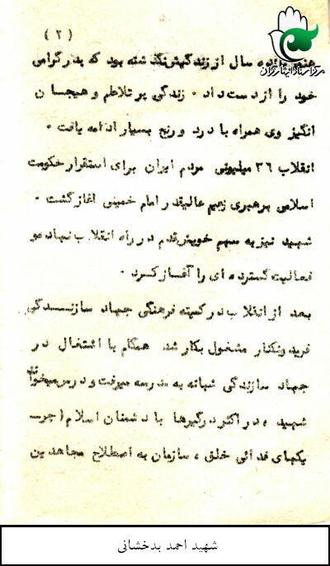 (۲)
هنوز یازده سال از زندگیش نگذشته بود که پدر گرامی
خود را از دست داد . زندگی پر تلاطم و هیجان
انگیز وی همراه با درد و رنج بسیار ادامه یافت .
انقلاب ۳۶ میلیونی مردم ایران برای استقرار حکومت
اسلامی برهبری زعیم عالیقدر امام خمینی آغاز گشت .
شهید نیز به سهم خویش قدم در راه انقلاب نهاد و
فعالیت گسترده ای را آغاز کرد .
بعد از انقلاب در کمیته فرهنگی جهاد سازندگی
فریدونکنار مشغول بکار شد همگام با اشتغال در
جهاد سازندگی شبانه به مدرسه میرفت و درس میخواند
شهید ، در اکثر درگیرها با دشمنان اسلام ( چر
یکهای فدائی خلق ، سازمان به اصطلاح مجاهدین
شهید احمد بدخشانی